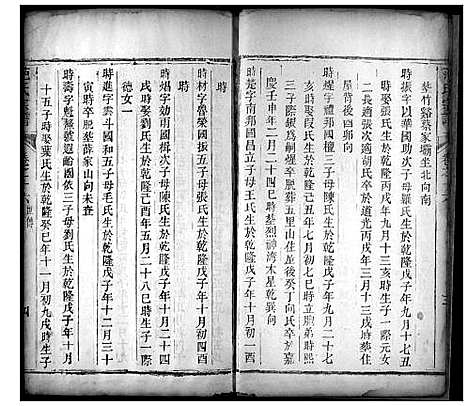 葬竹谿蔡家壩坐北向南
時提字以華國助次子母羅氏生於乾隆戊子年十月十七丑
時娶張氏生於乾隆丙戌年九月十三亥時生子一際元女
二長適張次適胡氏卒於道光丙戌年三月十三戌時葬住
屋背後巳卯向
時燿字 邦國檀三子母陳氏生於乾隆戊子年九月十九
亥時娶段氏生於乾隆己丑年七月初七巳時立堂弟時熙
子際桓為嗣 卒葬五里山住 後癸丁向氏卒於嘉
慶壬申年二月二十四巳時葬烈神灣木星乾巽向
時楚字南邦國昌立子母王氏生於乾隆戊子年十月初一酉
時
時材字魯榮國振五子母張氏生於乾隆戊子年十月初四酉
時
時焜字効甫國楫次子母陳氏生於乾隆戊子年十月二十四
戌時娶劉氏生於乾隆己酉年五月二十八巳時生子一際
德女一
時進字雲斗國和五子母毛氏生於乾隆戊子年十二月三十
寅時卒葬薛家山向未查
時壽字魁 號退 國依三子母劉氏生於乾隆戊子年十月
十五子時娶葉氏生於乾隆癸巳年十一月初九戌時生子